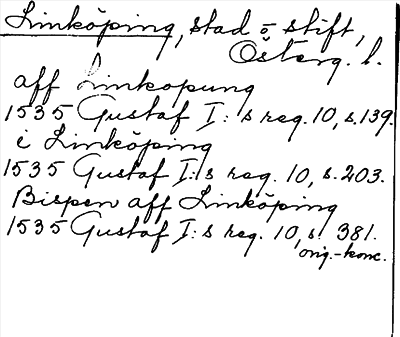 Linköping, stad o stift,
Österg. l.
aff Linkopung
1535 Gustaf I:s reg. 10, s. 139.
i Linköping
1535 Gustaf I:s reg. 10, s. 203.
Bispen aff Linköping
1535 Gustaf I:s reg. 10, s. 381.
orig.-konc.